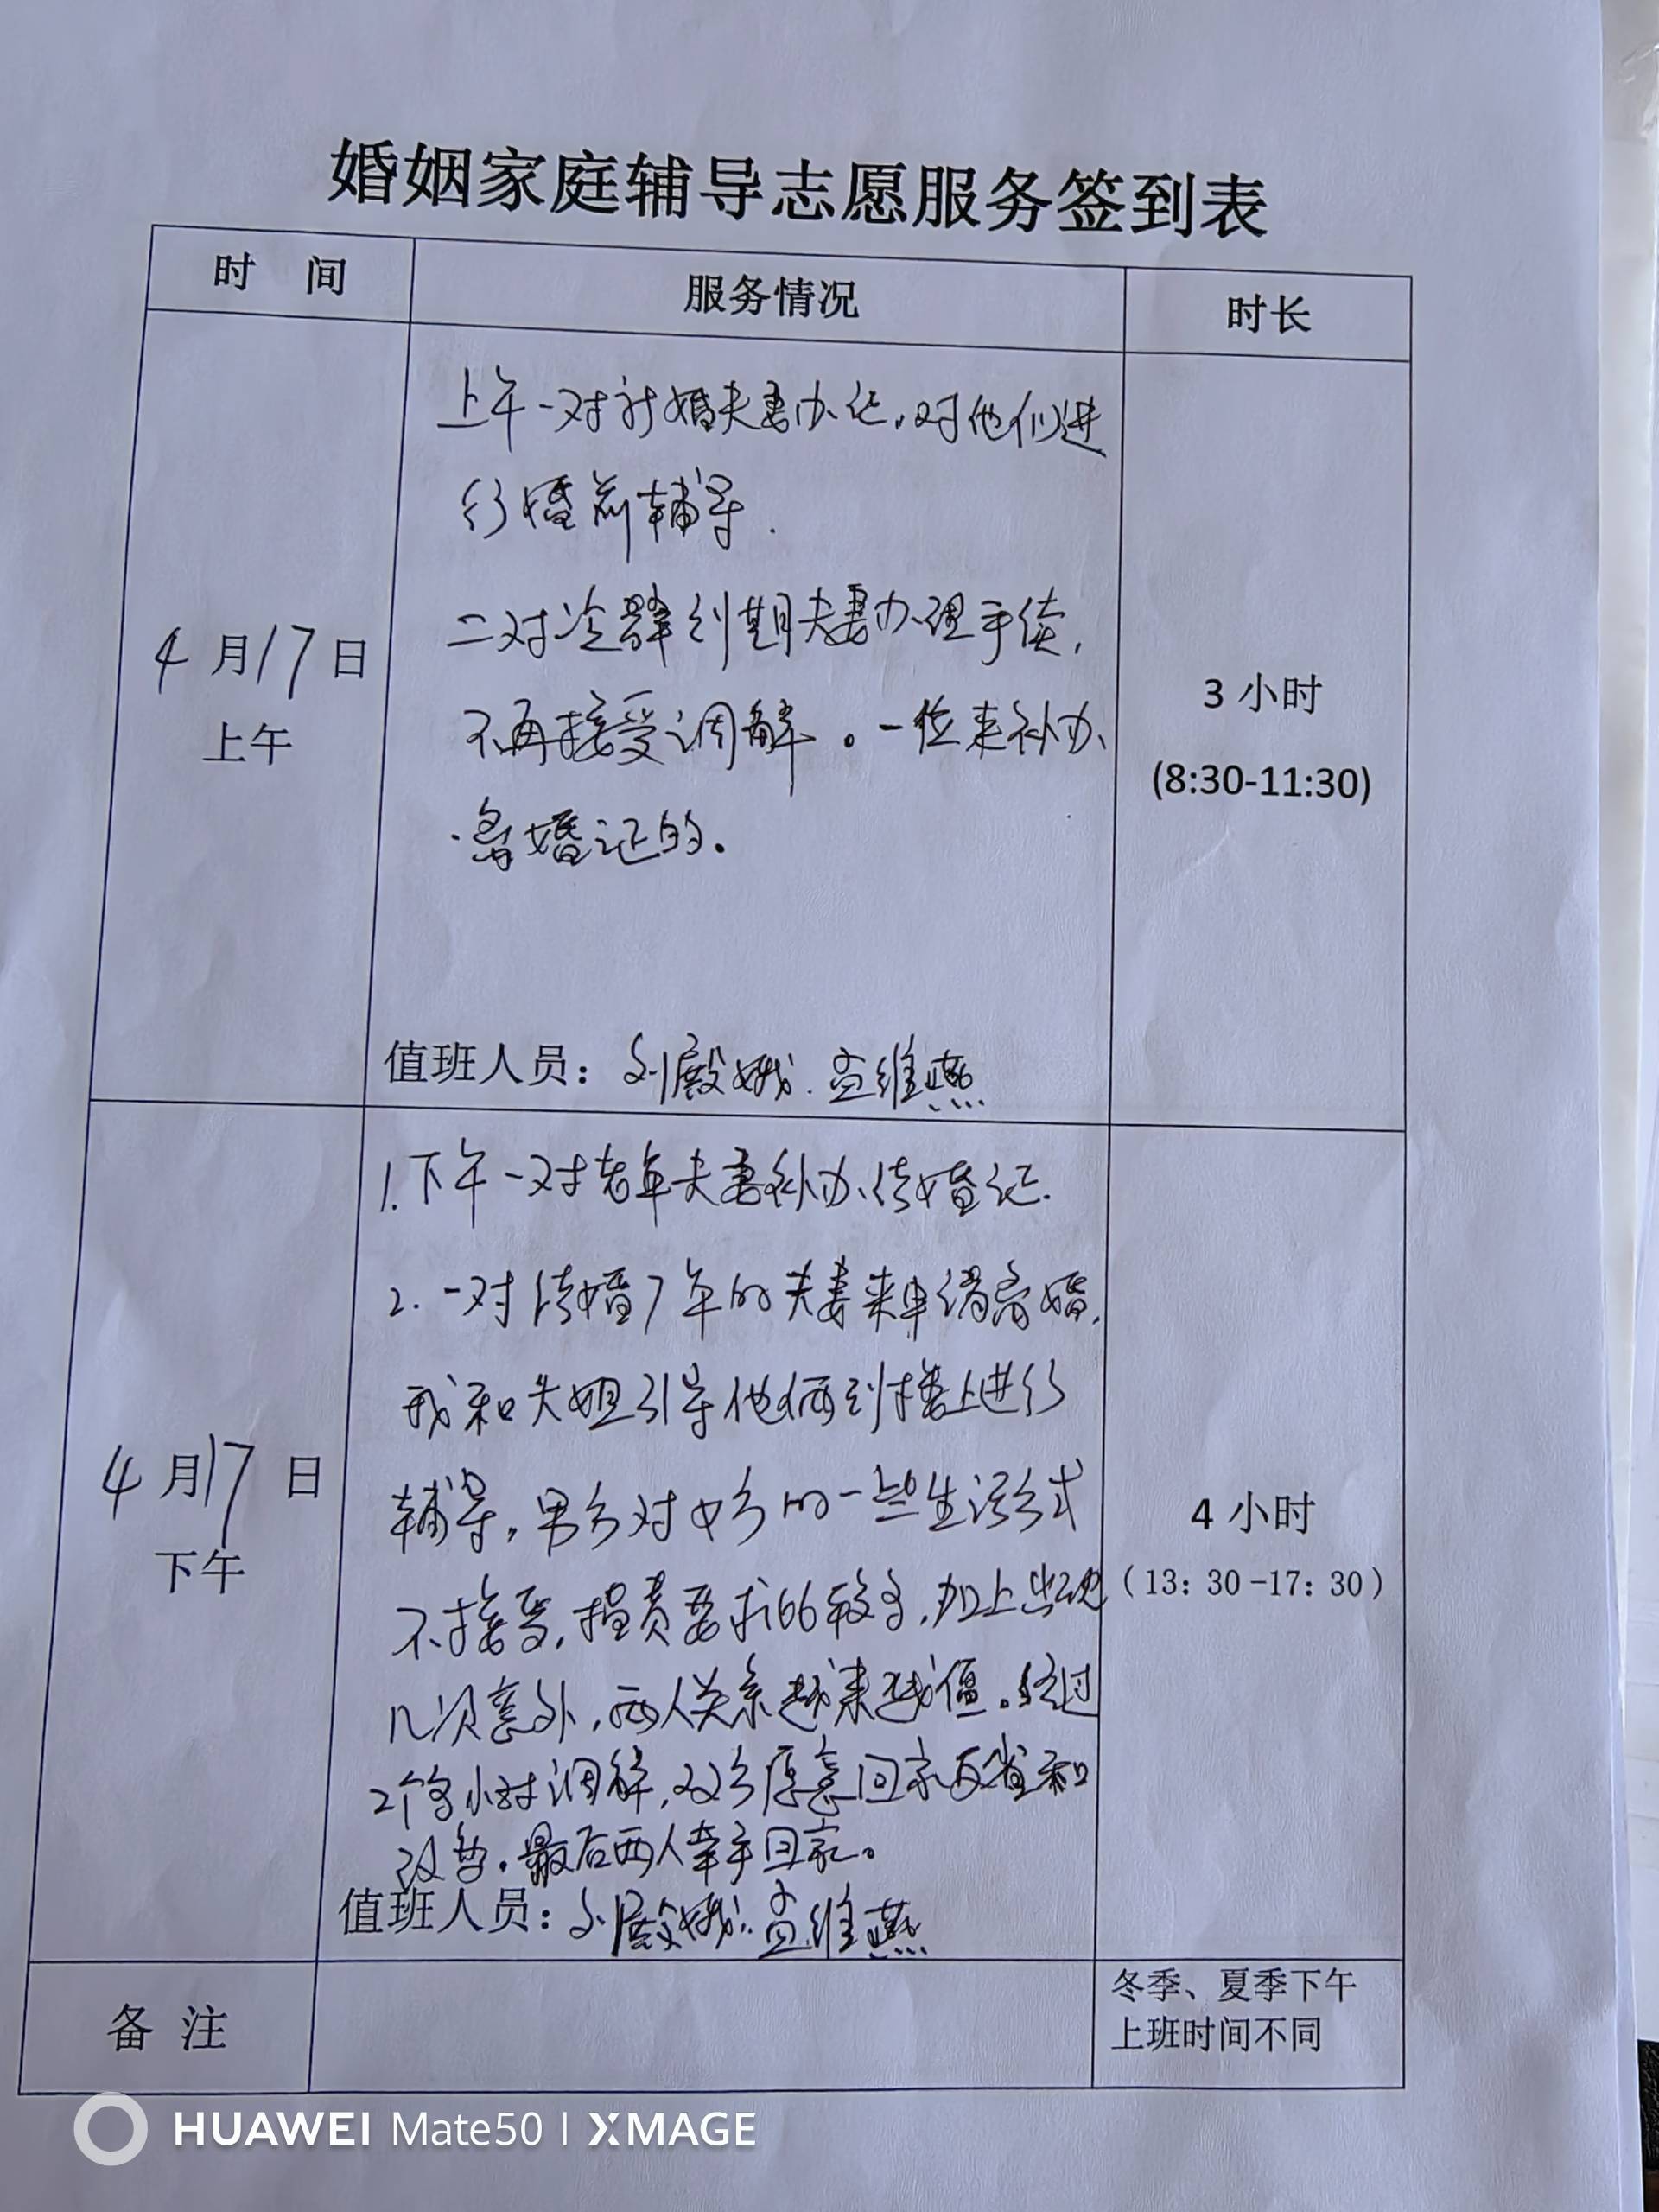 婚姻家庭辅导志愿服务签到表
时 间
服务情况
时长
4月17日
上午
上午一对新婚夫妻办证，对他们进
行婚前辅导.
二对冷静到期夫妻办理手续，
不再接受调解。一位来补办
离婚证的。
值班人员：刘殿娥.孟维燕
3 小时
(8:30-11:30)
4月17日
下午
1.下午一对老年夫妻补办结婚证.
2.一对结婚7年的夫妻来申请离婚，
我和 姐引导他俩到楼上进行
辅导，男方对女方的一些生活方式
不接受，指责要求的较多，加上出现
几次意外，两人关系越来越僵。经过
2个多小时调解，双方愿意回家反省和
改善。最后两人牵手回家。
值班人员：刘殿娥.孟维燕
4 小时
（13：30-17：30）
备 注
冬季、夏季下午
上班时间不同
HUAWEI Mate50 | XMAGE